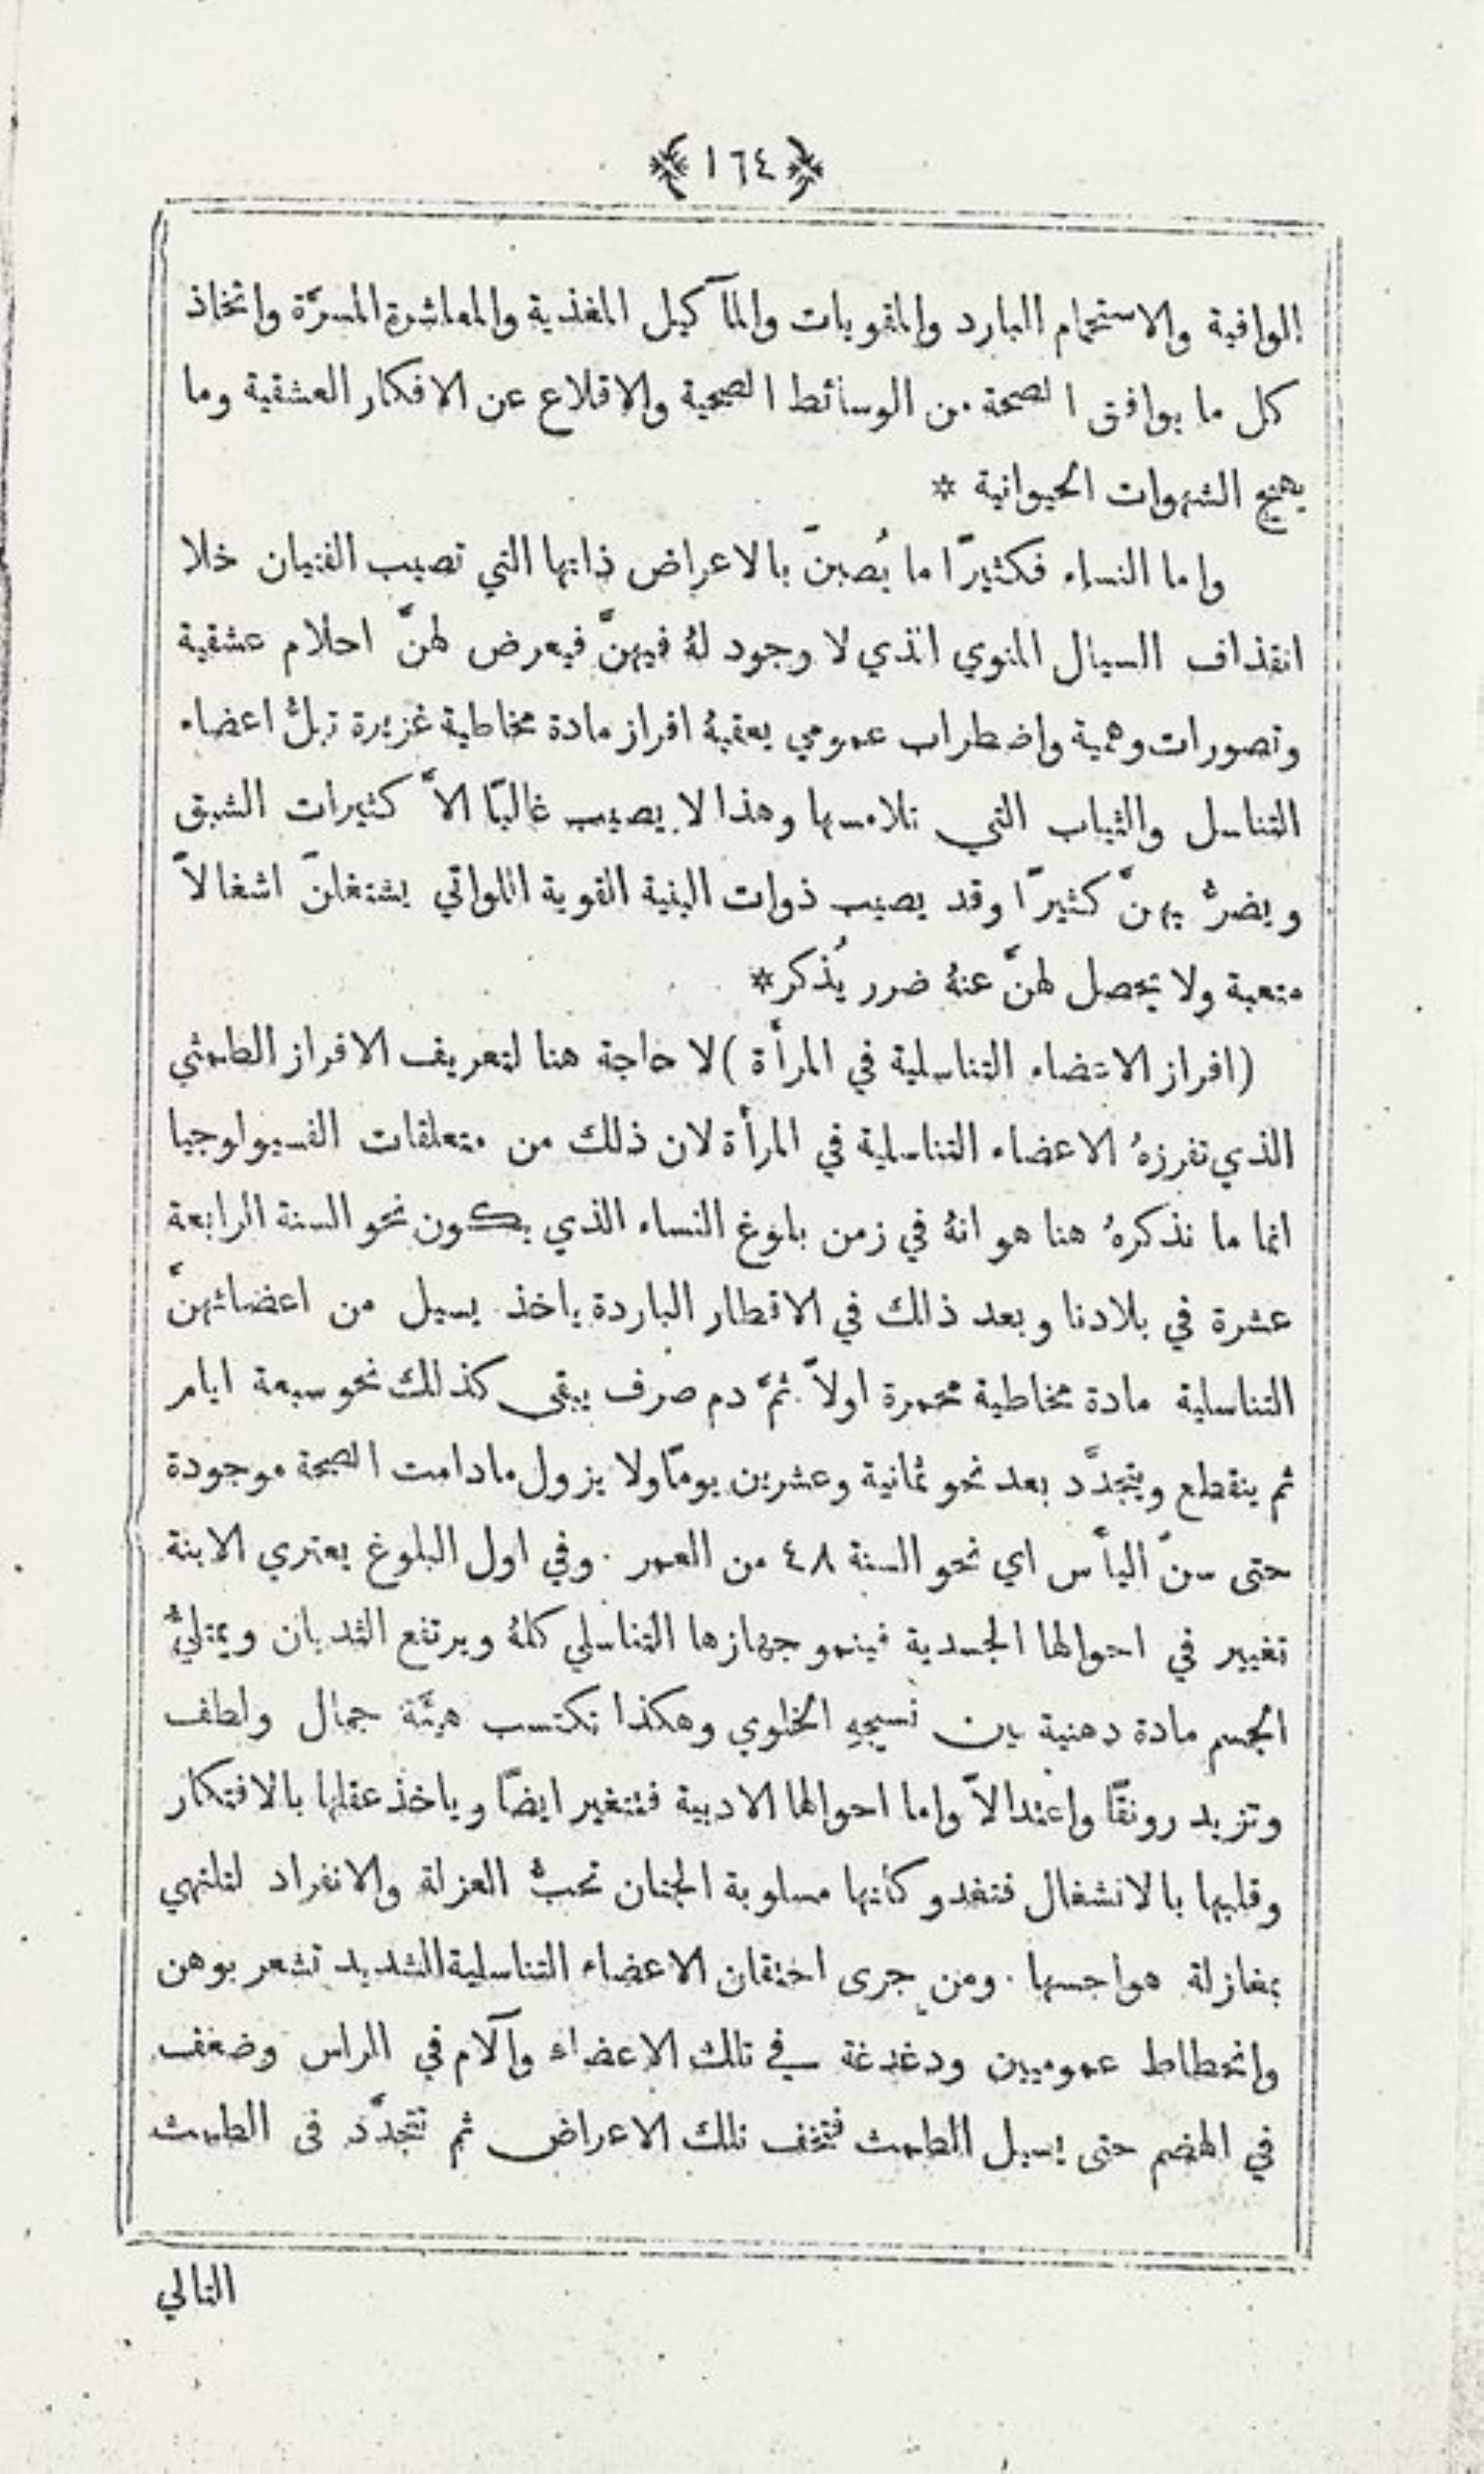 ﴿١٦٤﴾
الوافية والاستحمام البارد والمقويات والمآكيل المغذية والمعاشرة المسرَّة واتخاذ
كل ما يوافق الصحة من الوسائط الصحية والاقلاع عن الافكار العشقية وما
يهيج الشهوات الحيوانية *
واما النساء فكثيرًا ما يُصبنَ بالاعراض ذاتها التي تصيب الفتيان خلا
انقذاف السيال المنوي الذي لا وجود لهُ فيهنَّ فيعرض لهنَّ احلام عشقية
وتصورات وهمية واضطراب عمومي يعقبهُ افراز مادة مخاطية غزيرة تبلُّ اعضاء
التناسل والثياب التي تلامسها وهذا لا يصيب غالبًا الاَّ كثيرات الشبق
ويضرُّ بهنَّ كثيرًا وقد يصيب ذوات البنية القوية اللواتي يشتغلنَ اشغالاً
متعبة ولا يحصل لهنَّ عنهُ ضرر يُذكر*
(افراز الاعضاء التناسلية في المرأة) لا حاجة هنا لتعريف الافراز الطمثي
الذي تفرزهُ الاعضاء التناسلية في المرأة لان ذلك من متعلقات الفسيولوجيا
انما ما نذكرهُ هنا هو انهُ في زمن بلوغ النساء الذي يكون نحو السنة الرابعة
عشرة في بلادنا وبعد ذلك في الاقطار الباردة ياخذ يسيل من اعضائهنَّ
التناسلية مادة مخاطية محمرة اولاً ثمَّ دم صرف يبقى كذلك نحو سبعة ايام
ثم ينقطع ويتجدَّد بعد نحو ثمانية وعشرين يومًا ولا يزول مادامت الصحة موجودة
حتى سنّ اليأس اي نحو السنة ٤٨ من العمر . وفي اول البلوغ يعتري الابنة
تغيير في احوالها الجسدية فينمو جهازها التناسلي كلهُ ويرتفع الثديان ويمتلئُ
الجسم مادة دهنية بين نسيجهِ الخلوي وهكذا تكتسب هيئة جمال ولطف
وتزيد رونقًا واعتدالاً واما احوالها الادبية فتتغير ايضًا وياخذ عقلها بالافتكار
وقلبها بالانشغال فتغدو كانها مسلوبة الجنان تحبُّ العزلة والانفراد لتلتهي
بمغازلة هواجسها . ومن جرى احتقان الاعضاء التناسلية الشديد تشعر بوهن
وانحطاط عموميين ودغدغة في تلك الاعضاء وآلام في الراس وضعف
في الهضم حتى يسيل الطمث فتخف تلك الاعراض ثم تتجدَّد في الطمث
التالي